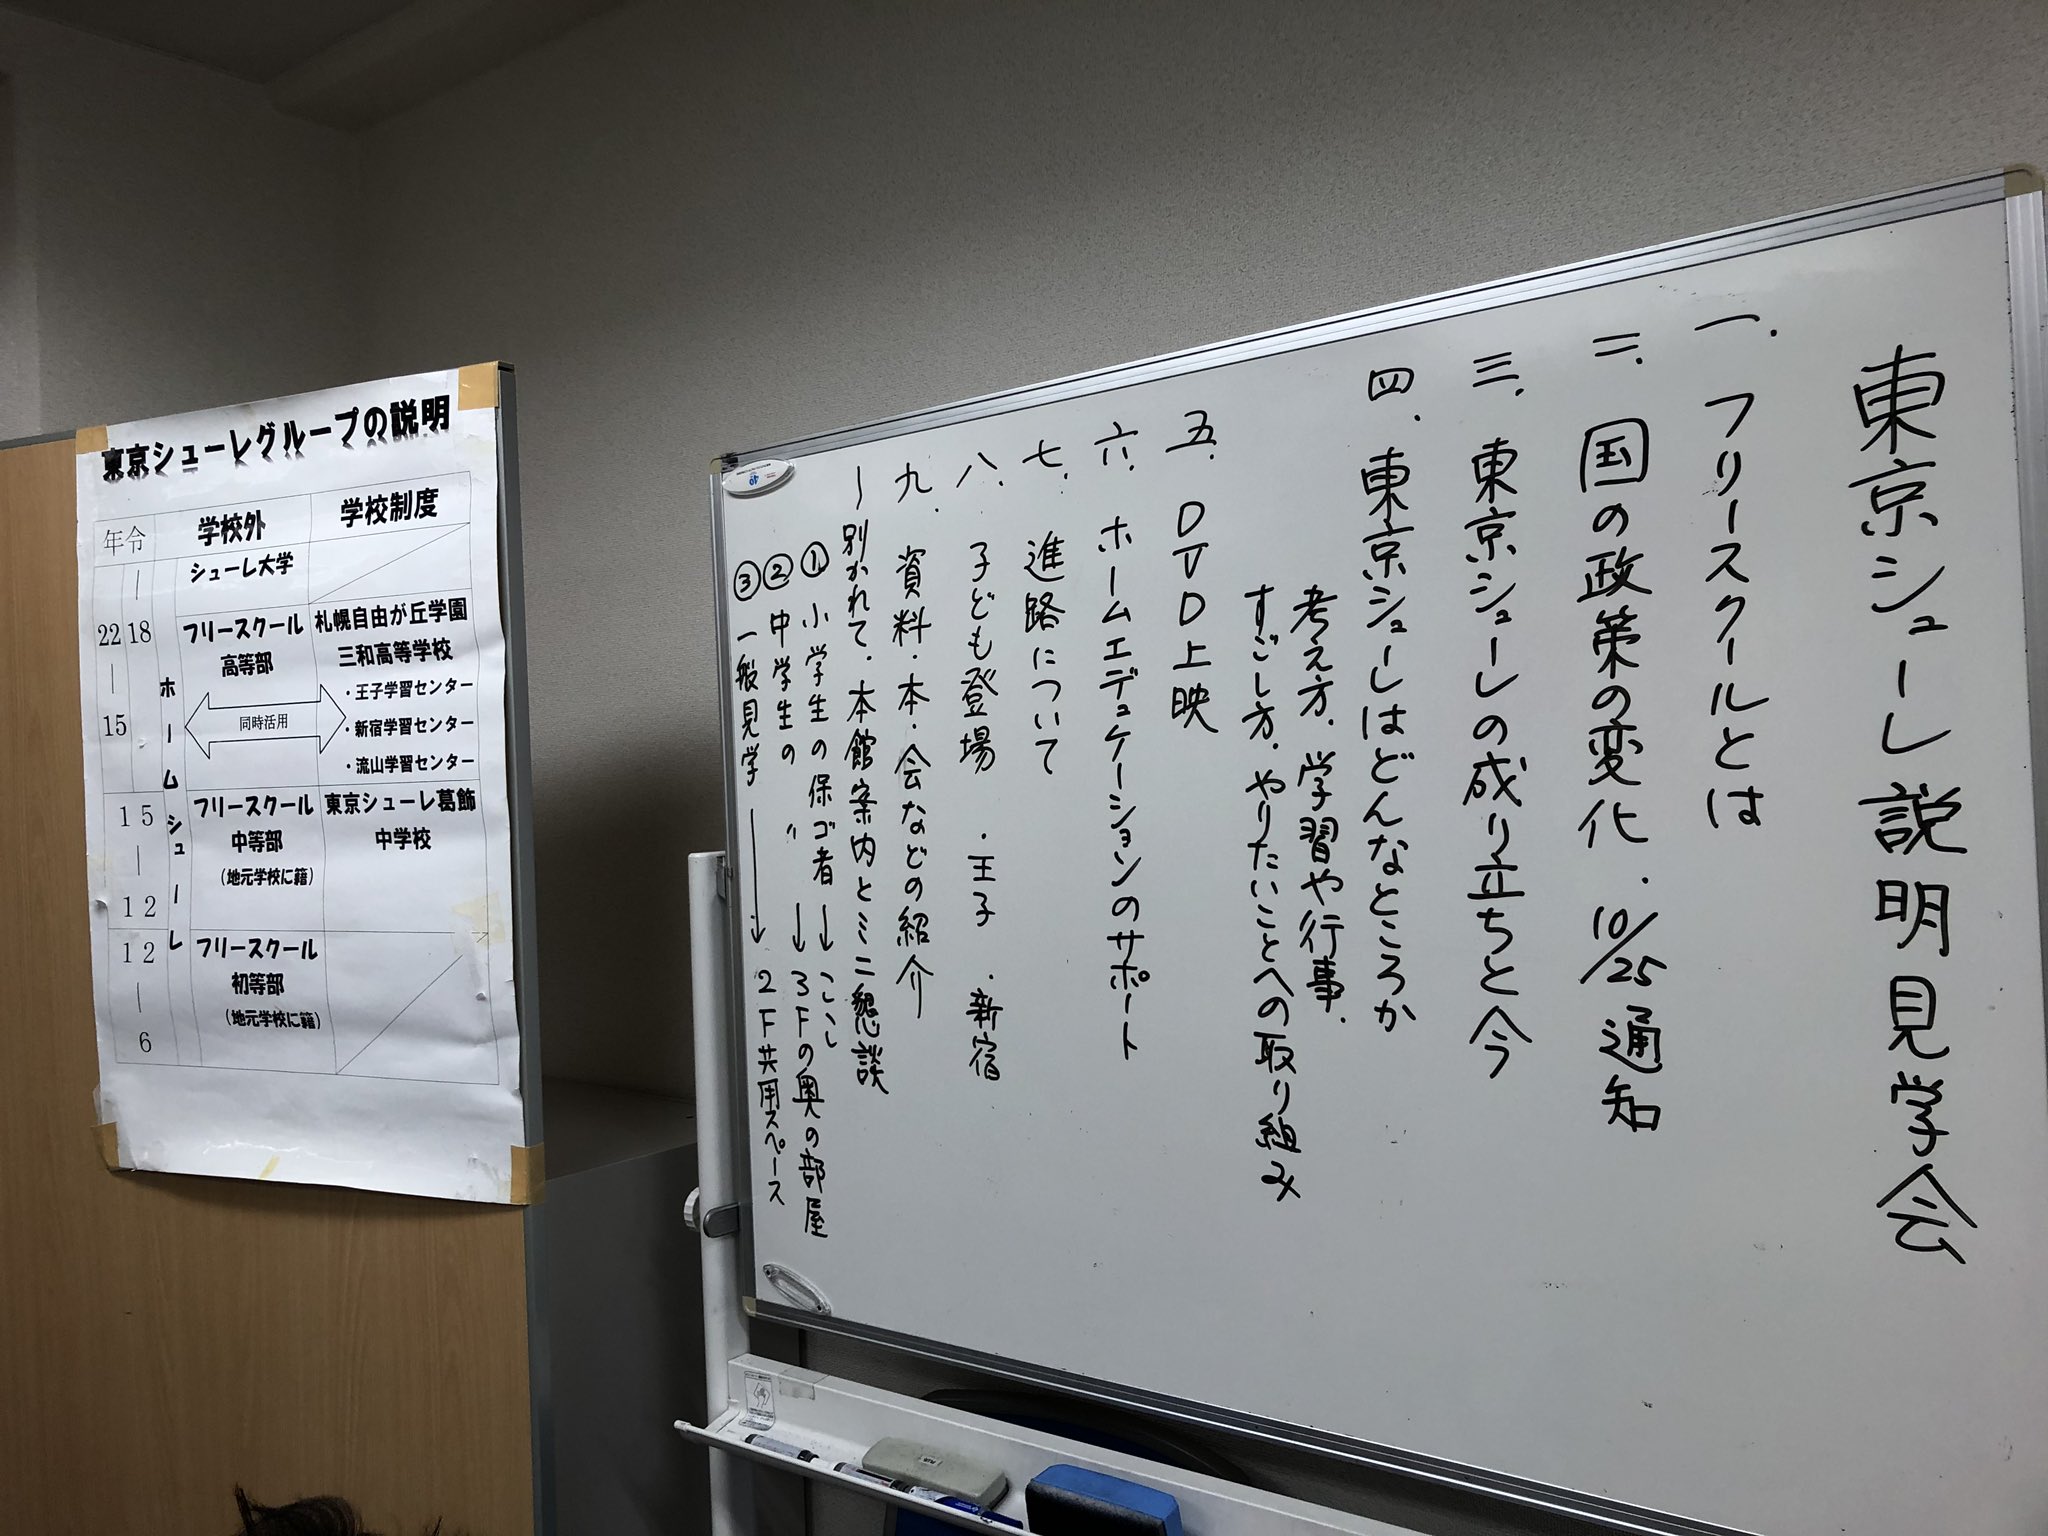 東京シューレ説明見学会
一. フリースクールとは
二. 国の政策の変化. 10/25通知
三. 東京シューレの成り立ちと今
四. 東京シューレはどんなところか
考え方. 学習や行事.
すごし方. やりたいことへの取り組み
五. DVD上映
六. ホームエデュケーションのサポート
七. 進路について
八. 子ども登場 ・王子 ・新宿
九. 資料・本・会などの紹介
〜別かれて・本館案内とミニ懇談
① 小学生の保ゴ者→ここ
② 中学生の 〃 →3Fの奥の部屋
③ 一般見学 →2F共用スペース
東京シューレグループの説明
年令 学校外 学校制度
| シューレ大学
22 18 フリースクール 札幌自由が丘学園
高等部 三和高等学校
・王子学習センター
| 同時活用 ・新宿学習センター
15 ・流山学習センター
ホームシューレ
15 フリースクール 東京シューレ葛飾
| 中等部 中学校
12 (地元学校に籍)
12 フリースクール
| 初等部
6 (地元学校に籍)